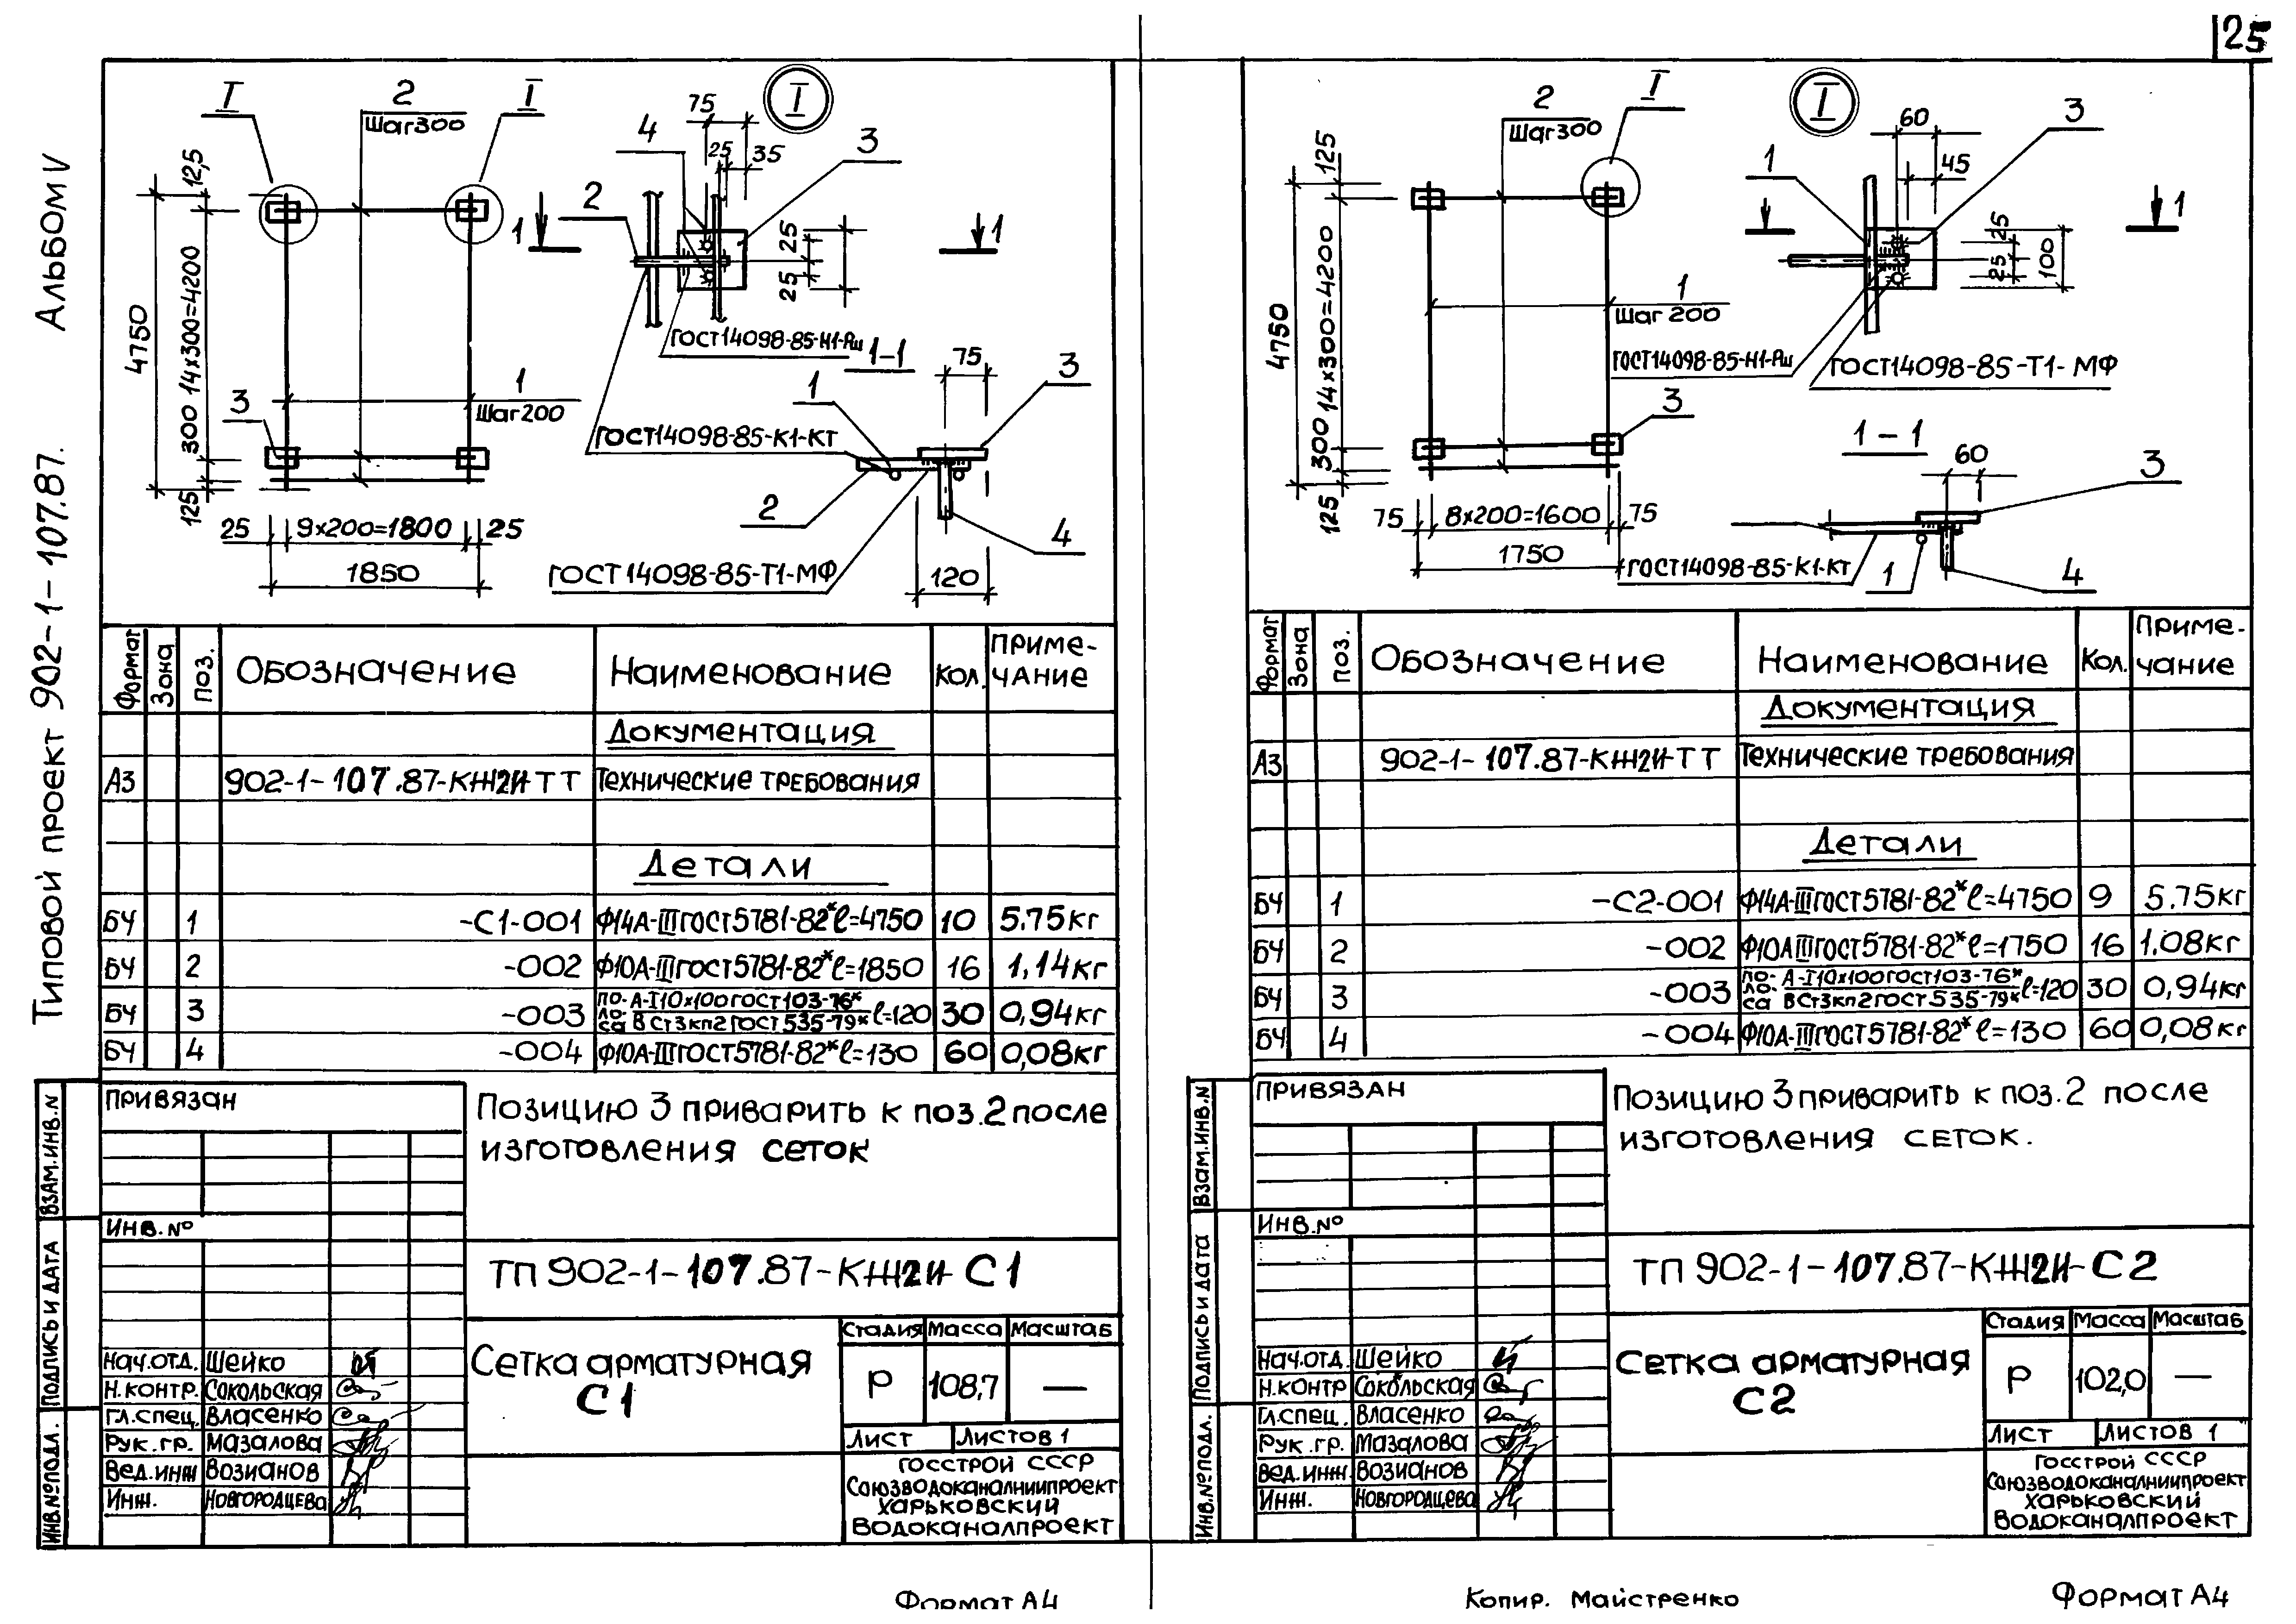 25
Типовой проект 902-1-107.87. Альбом V
I
2
Шаг 300
I
I
4
75
25
35
3
2
1
1
25
25
12,5
4750
300 14х300=4200
125
3
1
Шаг 200
25
9х200=1800
25
1850
ГОСТ14098-85-Н1-Рш
1-1
75
3
1
ГОСТ14098-85-К1-КТ
2
4
ГОСТ14098-85-Т1-МФ
120
Формат
Зона
Поз.
Обозначение
Наименование
Кол.
Приме-
чание
Документация
А3 902-1-107.87-КЖ2И-ТТ Технические требования
Детали
БЧ 1 -С1-001 Ф14А-III ГОСТ5781-82* ℓ=4750 10 5.75кг
БЧ 2 -002 Ф10А-III ГОСТ5781-82* ℓ=1850 16 1,14кг
БЧ 3 -003 Полоса А-I 10х100 ГОСТ103-76* / ВСт3кп2 ГОСТ535-79* ℓ=120 30 0,94кг
БЧ 4 -004 Ф10А-III ГОСТ5781-82* ℓ=130 60 0,08кг
Привязан
Инв.№
Позицию 3 приварить к поз.2 после
изготовления сеток
ТП 902-1-107.87-КЖ2И-С1
Сетка арматурная
С1
Стадия Масса Масштаб
Р 108,7 —
Лист Листов 1
Госстрой СССР
Союзводоканалниипроект
Харьковский
Водоканалпроект
Нач.отд. Шейко
Н.контр. Сокольская
Гл.спец. Власенко
Рук.гр. Мазалова
Вед.инж Возианов
Инж. Новгородцева
Взам.инв.N
Подпись и дата
Инв.№подл.
Формат А4
2
Шаг 300
I
I
60
3
1
45
1
25
25
100
125
4750
300 14х300=4200
125
1
Шаг 200
3
ГОСТ14098-85-Н1-Рш
ГОСТ14098-85-Т1-МФ
1-1
60
3
75
8х200=1600
75
1750
ГОСТ14098-85-К1-КТ
1
4
Формат
Зона
Поз.
Обозначение
Наименование
Кол.
Приме-
чание
Документация
А3 902-1-107.87-КЖ2И-ТТ Технические требования
Детали
БЧ 1 -С2-001 Ф14А-III ГОСТ5781-82* ℓ=4750 9 5.75кг
БЧ 2 -002 Ф10АIII ГОСТ5781-82* ℓ=1750 16 1.08кг
БЧ 3 -003 Полоса А-I 10х100 ГОСТ103-76* / ВСт3кп2 ГОСТ535-79* ℓ=120 30 0,94кг
БЧ 4 -004 Ф10А-III ГОСТ5781-82* ℓ=130 60 0,08кг
Привязан
Инв.№
Позицию 3 приварить к поз.2 после
изготовления сеток.
ТП 902-1-107.87-КЖ2И-С2
Сетка арматурная
С2
Стадия Масса Масштаб
Р 102,0 —
Лист Листов 1
Госстрой СССР
Союзводоканалниипроект
Харьковский
Водоканалпроект
Нач.отд. Шейко
Н.контр Сокольская
Гл.спец. Власенко
Рук.гр. Мазалова
Вед.инж. Возианов
Инж. Новгородцева
Взам.инв.N
Подпись и дата
Инв.№подл.
Копир. Майстренко
Формат А4